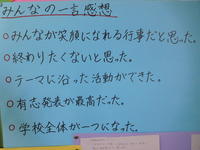 みんなの一言感想
○みんなが笑顔になれる行事だと思った。
○終わりたくないと思った。
○テーマに沿った活動ができた。
○有志発表が最高だった。
○学校全体が一つになった。